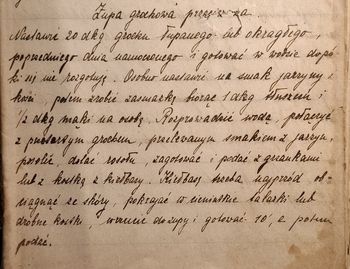 Zupa grochowa przecierana.
Nastawić 20 dkg grochu łupanego lub okrągłego,
poprzedniego dnia namoczonego i gotować w wodzie dopó-
ki się nie rozgotuje. Osobno nastawić na smak jarzyny i
kości, potem zrobić zasmażkę biorąc 1 dkg tłuszczu i
1/2 dkg mąki na osobę. Rozprowadzić wodą, połączyć
z przetartym grochem, przecedzonym smakiem z jarzyn,
posolić, dolać rosołu, zagotować i podać z grzankami
lub z kostką z kiełbasy. Kiełbasę trzeba uprzednio ob-
ciągnąć ze skóry, pokrajać w cieniutkie talarki lub
drobne kostki, wrzucić do zupy i gotować 10', a potem
podać.